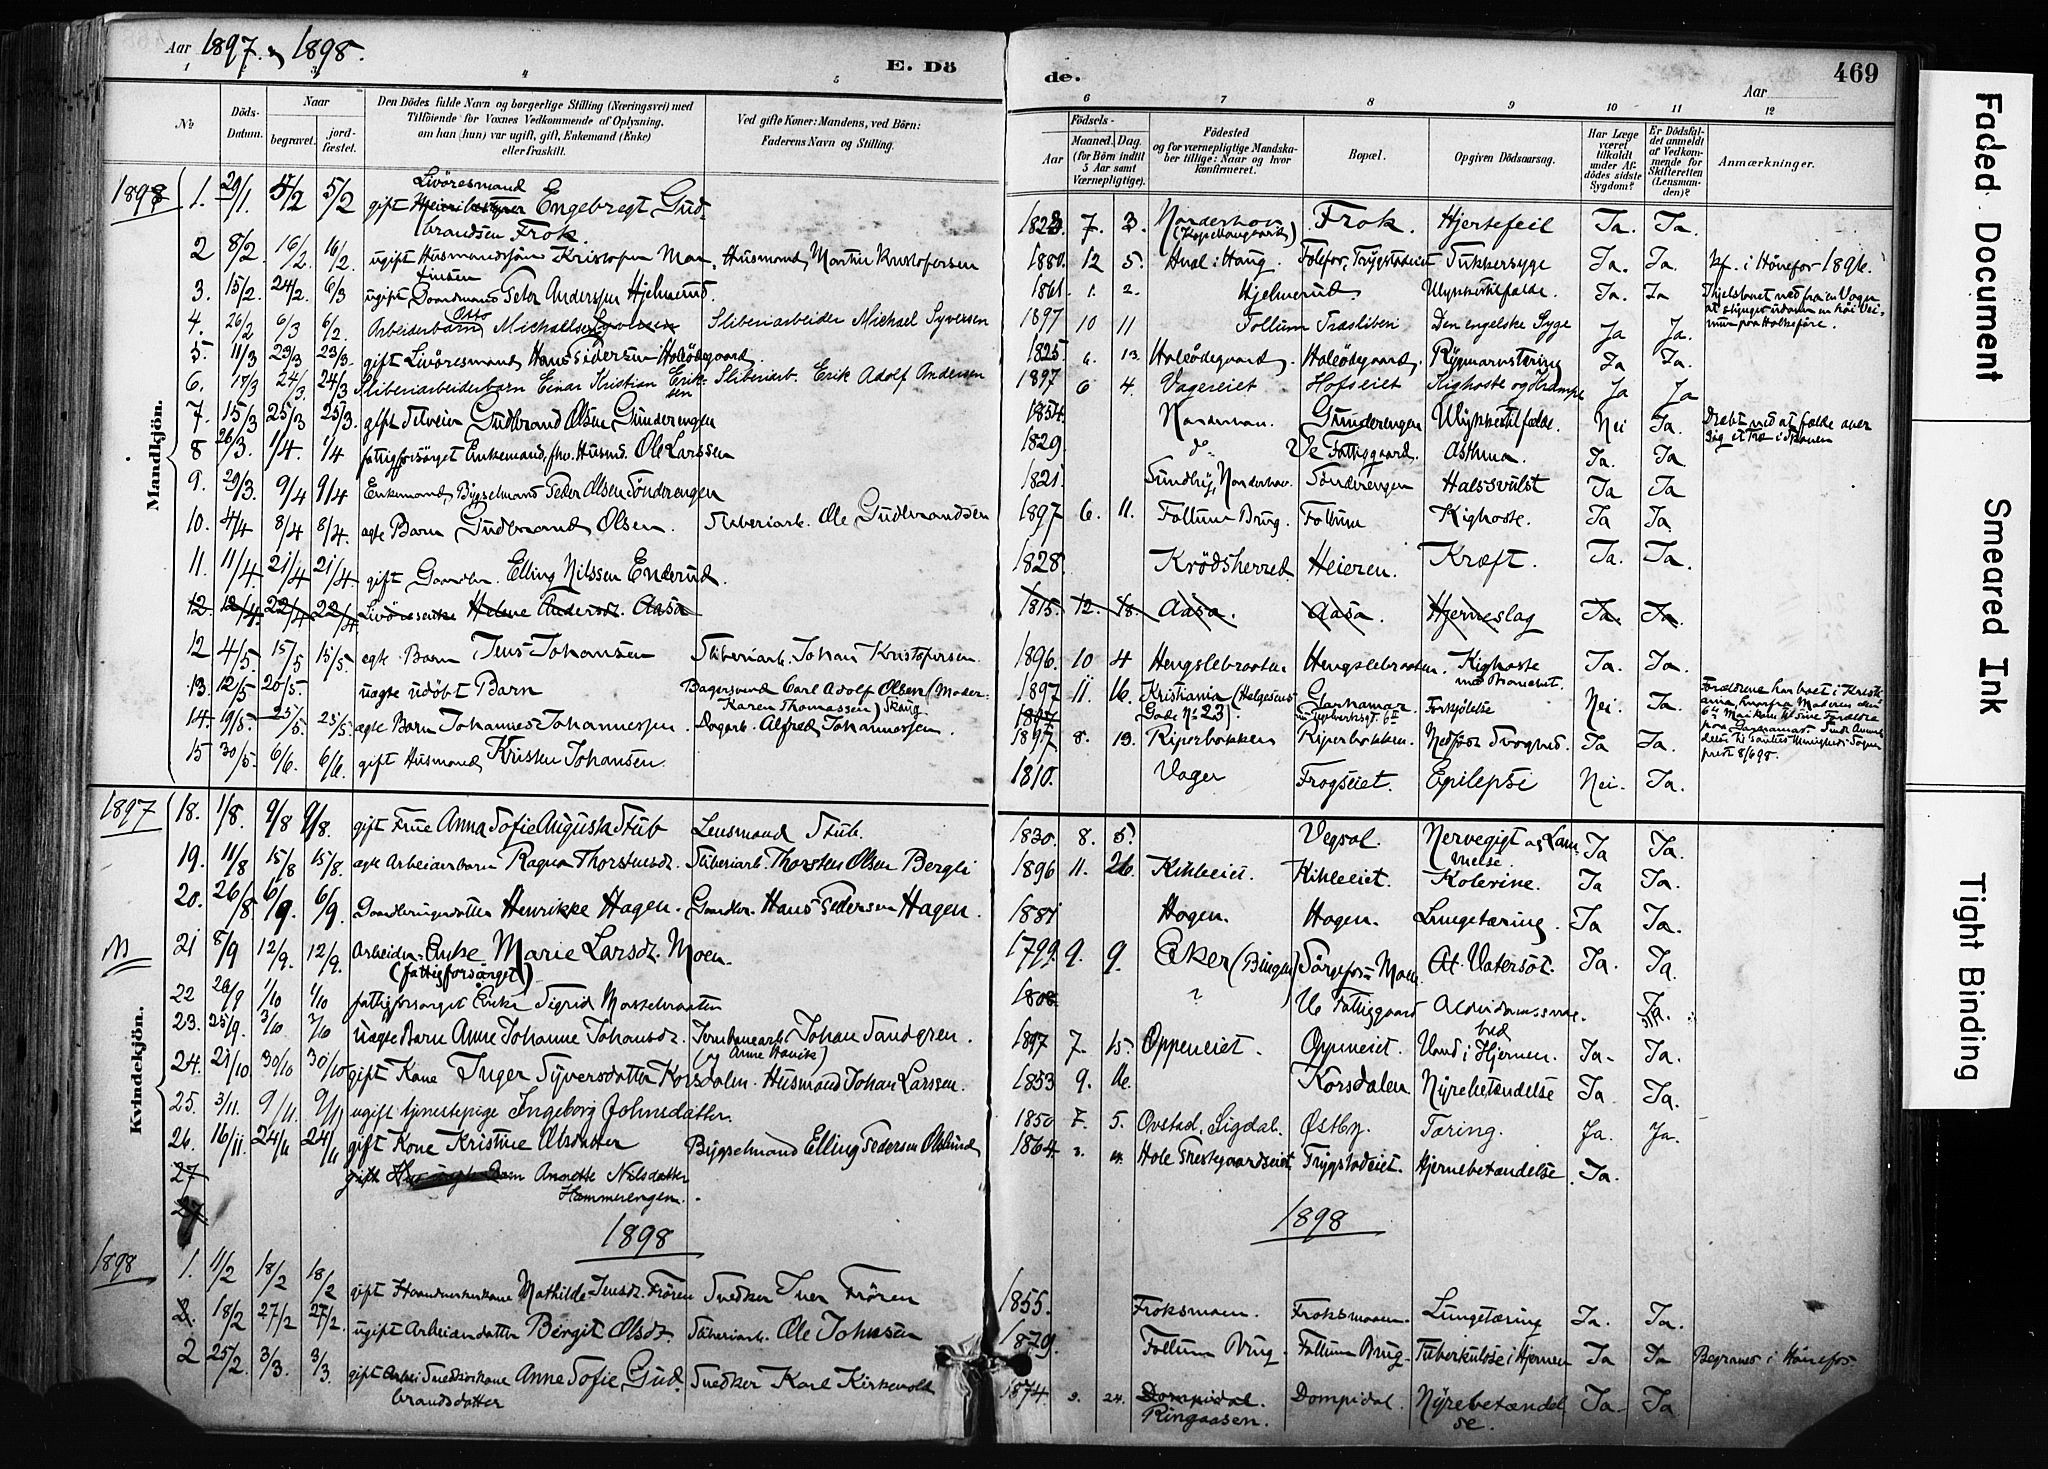 Aar 1897 & 1898.
E. Dö
de.
Aar
469
1 2 3 4 5 6 7 8 9 10 11 12
No
Döds-Datum.
Naar
begravet.
jord-fæstet.
Den Dödes fulde Navn og borgerlige Stilling (Næringsvei) med
Tilföiende for Voxnes Vedkommende af Oplysning,
om han (hun) var ugift, gift, Enkemand (Enke)
eller fraskilt.
Ved gifte Koner: Mandens, ved Börn:
Faderens Navn og Stilling.
Födsels-
Aar
Maaned. Dag.
(for Börn indtil
5 Aar samt
Værnepligtige).
Födested
og for værnepligtige Mandska-
ber tillige: Naar og hvor
konfirmeret.
Bopæl.
Opgiven Dödsaarsag.
Har Læge
været
tilkaldt
under Af-
dödes sidste
Sygdom?
Er Dödsfal-
det anmeldt
af Vedkom-
mende for
Skifteretten
(Lensman-
den)?
Anmærkninger.
Mandkjön.
1898 1. 29/1 5/2 5/2 gift Livöresmand Engebregt Gud-
brandsen Frok. 1823 7. 3. Norderhov Frok. Hjertefeil Ja. Ja.
2 8/2. 16/2. 16/2. ugift Husmandssön Kristofer Mar-
tinsen Husmand Martin Kristofersen 1880. 12 5. Hval i Haug. Trygstadeiet Sukkersyge Ja. Ja. kf. i Hönefos 1896.
3. 15/2. 24/2. 6/3 ugift Gaardmand Peder Andersen Hjelmerud. 1861. 1. 2. Hjelmerud. Ulykkestilfælde. Ja. Ja
4. 26/2 6/3 6/2. Arbeiderbarn Otto Michaelsen Syversen Sliberiarbeider Michael Syversen 1897 10 11 Follum Træsliberi Den engelske Syge Ja Ja.
5. 11/3 23/3 23/3. gift Livöresmand Hans Pedersen Holeödegaard. 1825. 6. 13. Holeödegaard. Holeödegaard. Rygmarvstæring Ja Ja.
6. 17/3 24/3. 24/3 Sliberiarbeiderbarn Einar Kristian Erik-
sen Sliberiarb. Erik Adolf Andersen 1897 6 4. Vagereiet Hofseiet Kighoste og Krampe Ja Ja
7. 15/3 25/3 25/3. gift Selveier Gudbrand Olsen Gunderengen 1854. Norderhov. Gunderengen Ulykkestilfælde. Nei Ja. Dræbt ved at falde over
sig et Træ i Skoven
8 26/3. 1/4. 1/4 fattigforsörget Enkemand, fhv. Husmd. Ole Larssen 1829. do Ve Fattiggaard. Asthma. Ja. Ja
9. 29/3. 9/4 9/4 Enkemand, Bygselmand Peder Olsen Sönderengen 1821. Sundby, Norderhov. Sönderengen Halssvulst Ja Ja
10. 4/4 8/4 8/4. ægte Barn Gudbrand Olsen. Sliberiarb. Ole Gudbrandsen 1897 6. 11. Follum Brug. Follum Kighoste. Ja Ja
11. 11/4 21/4 21/4. gift Gaardbr. Elling Nilssen Enderud. 1828. Krödsherred Heieren. Kræft. Ja. Ja.
12. 12/4. 22/4 22/4. Livöresenke Helene Andersd. Aasa 1815. 12. 18. Aasa. Aasa. Hjerneslag Ja. Ja.
12 4/5. 15/5 15/5. egte Barn Jens Johansen Sliberiarb. Johan Kristofersen. 1896. 10 4 Hengslebraaten Hengslebraaten. Kighoste
med Ja. Ja.
13. 12/5 20/5. uægte udöbt Barn Bagersvend Carl Adolf Olsen (Moder:
Karen Thomassen) Skaug 1897 11 16. Kristiania (Helgesens
Gade No 23) Forkjölelse Nei. Ja.
14. 19/5. 25/5 25/5. ægte Barn Johannes Johannessen. Dagarb. Alfred Johannessen. 1897 8. 19. Riperbakken Riperbakken. Medfödt Svaghed. Ja Ja.
15 30/5. 6/6 6/6. gift Husmand Kristen Johansen. 1810. Vager Frogseiet. Epilepsi Nei. Ja.
1897 18. 1/8. 9/8 9/8. gift Frue Anna Sofie Augusta Stub Lensmand Stub. 1830. 8. 5. Vegsal. Nervegigt og Lam-
melse. Ja Ja.
19. 11/8 15/8 15/8. ægte Arbeiderbarn Ragna Thorstensd. Sliberiarb. Thorsten Olsen Bergli 1896 11. 26. Kihleeiet. Kihleeiet. Kolerine. Ja Ja.
20. 26/8 6/9 6/9. Gaardbrugerdatter Henrikke Hagen. Gaardbr. Hans Pedersen Hagen. 1881 Hagen. Hagen. Lungetæring. Ja Ja.
M 21 8/9 12/9. 12/9. Arbeider-Enke Marie Larsd. Moen.
(fattigforsörget) 1799. 9. 9. Eker (Bingen) Moen At. Vatersot. Ja. Ja.
Kvindekjön.
22 20/9 1/10 1/10 fattigforsörget Enke Sigrid Mosebraaten 1808. ? Ve Fattiggaard Alderdomssvag-
hed
23. 25/9. 3/10 3/10 uægte Barn Anne Johanne Johansd. Jernbanearb. Johan Sandgren.
(og Anne Hovik) 1897 7. 15. Oppeneiet. Oppeneiet. Vand i Hjernen. Ja- Ja.
24. 21/10 30/10 30/10 gift Kone Inger Syversdatter Korsdalen. Husmand Johan Larssen. 1853 9. 16. Korsdalen Nyrebetændelse Ja Ja.
25. 3/11. 9/11. 9/11 ugift tjenestepige Ingeborg Johnsdatter. 1850 7. 5. Ovstad, Sigdal. Østby. Tæring. Ja. Ja.
26. 16/11. 24/11 24/11 gift Kone Kristine Olsdatter Bygselmand Elling Pedersen Öslund 1864. Hole Prestegaardseiet Trygstadeiet. Hjernebetændelse. Ja.
27 gift Barn Annette Nilsdatter
Hammerengen.
27.
1898
1898
1898 1. 11/2 18/2 18/2 gift Haandverkerkone Mathilde Jensd. Frören Snedker Iver Frören 1855. Froksmoen. Froksmoen. Lungetæring Ja. Ja.
2. 18/2 27/2 27/2. ugift Arbeiderdatter Bergit Olsd. Sliberiarb. Ole Johnsen 1879. Follum Brug. Follum Brug. Tuberkulose i Hjernen Ja Ja Begravet i Hönefos
2 25/2. 3/3. 3/3. gift Snedkerkone Anne Sofie Gud-
brandsdatter Snedker Karl Kirkevold 1874. 9. 24. Dompidal.
Ringaasen. Dompidal. Nyrebetændel-
se. Ja. Ja
Faded Document
Smeared Ink
Tight Binding